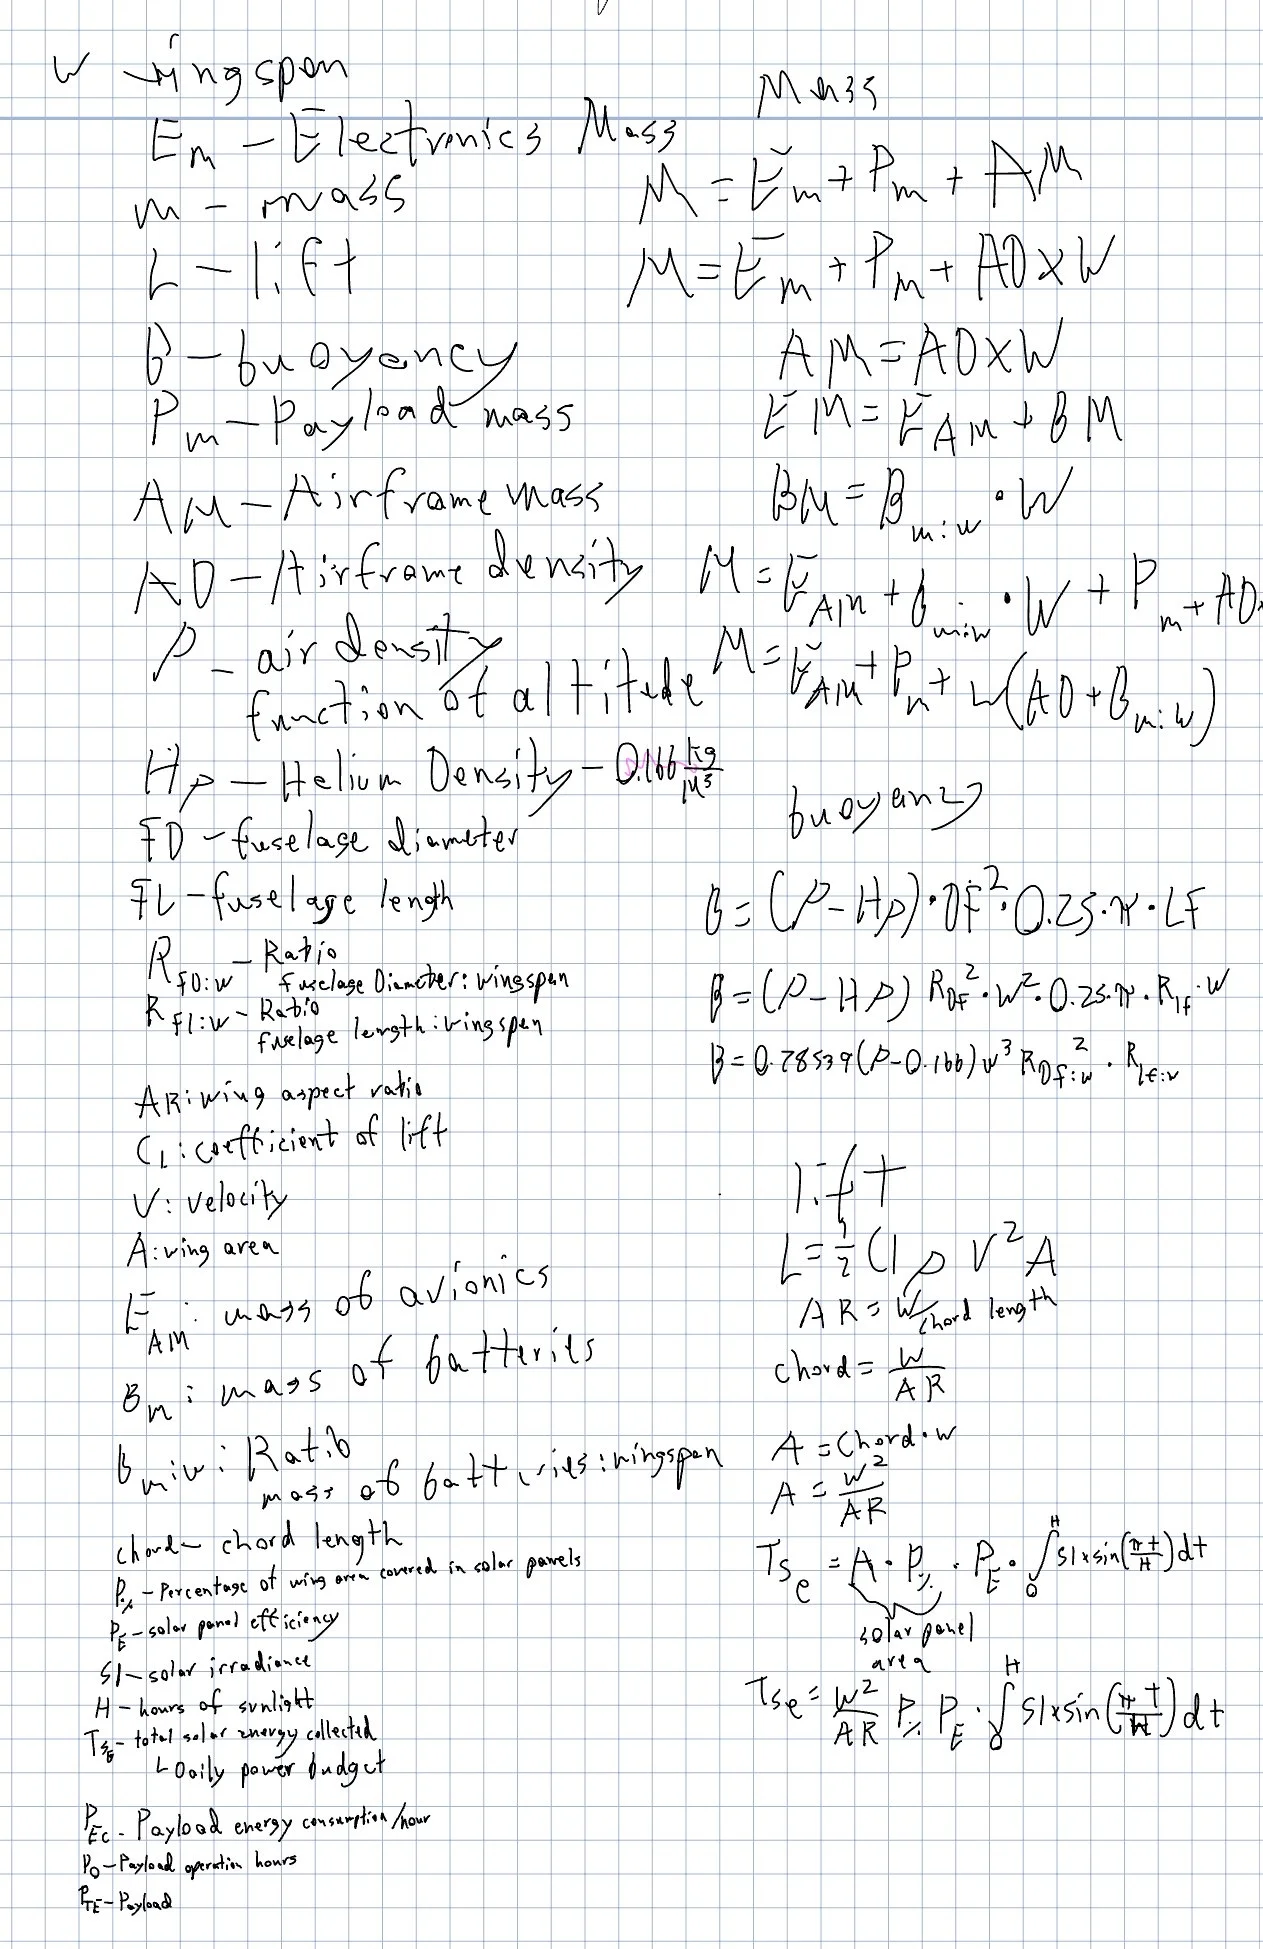 w - wingspan
Em - Electronics Mass
m - mass
L - lift
B - buoyancy
Pm - Payload mass
AM - Airframe mass
AD - Airframe density
ρ - air density
function of altitude
Hρ - Helium Density - 0.166 kg/M³
FD - fuselage diameter
FL - fuselage length
R fD:w - Ratio
fuselage Diameter: wingspan
R fl:w - Ratio
fuselage length: wingspan
AR: wing aspect ratio
CL: coefficient of lift
V: velocity
A: wing area
E AM: mass of avionics
Bm: mass of batteries
B m:w: Ratio
mass of batteries: wingspan
chord - chord length
P% - Percentage of wing area covered in solar panels
PE - solar panel efficiency
SI - solar irradiance
H - hours of sunlight
TsE - total solar energy collected
L Daily power budget
PEC - Payload energy consumption/hour
PO - Payload operation hours
PTE - Payload
Mass
M = Em + Pm + AM
M = Em + Pm + AD×W
AM = AD×W
EM = E AM + BM
BM = B m:w · W
M = E AM + B m:w · W + Pm + AD
M = E AM + Pm + w(AD + B m:w)
buoyancy
B = (ρ - Hρ) · DF² · 0.25 · π · LF
B = (ρ - Hρ) R DF² · W² · 0.25 · π · R lf · W
B = 0.78539(ρ - 0.166) w³ R Df:w² · R lf:w
lift
L = 1/2 Cl ρ V² A
AR = W/chord length
chord = W/AR
A = chord · w
A = w²/AR
Ts e = A · P% · PE · ∫₀ᴴ SI×sin(πt/H) dt
solar panel
area
Ts e = w²/AR P% PE · ∫₀ᴴ SI×sin(πt/H) dt